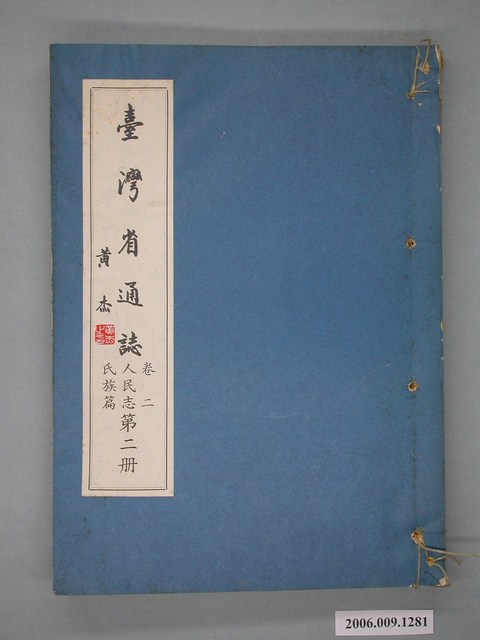 臺灣省通誌
黃杰
卷二
人民志
氏族篇
第二册
2006.009.1281